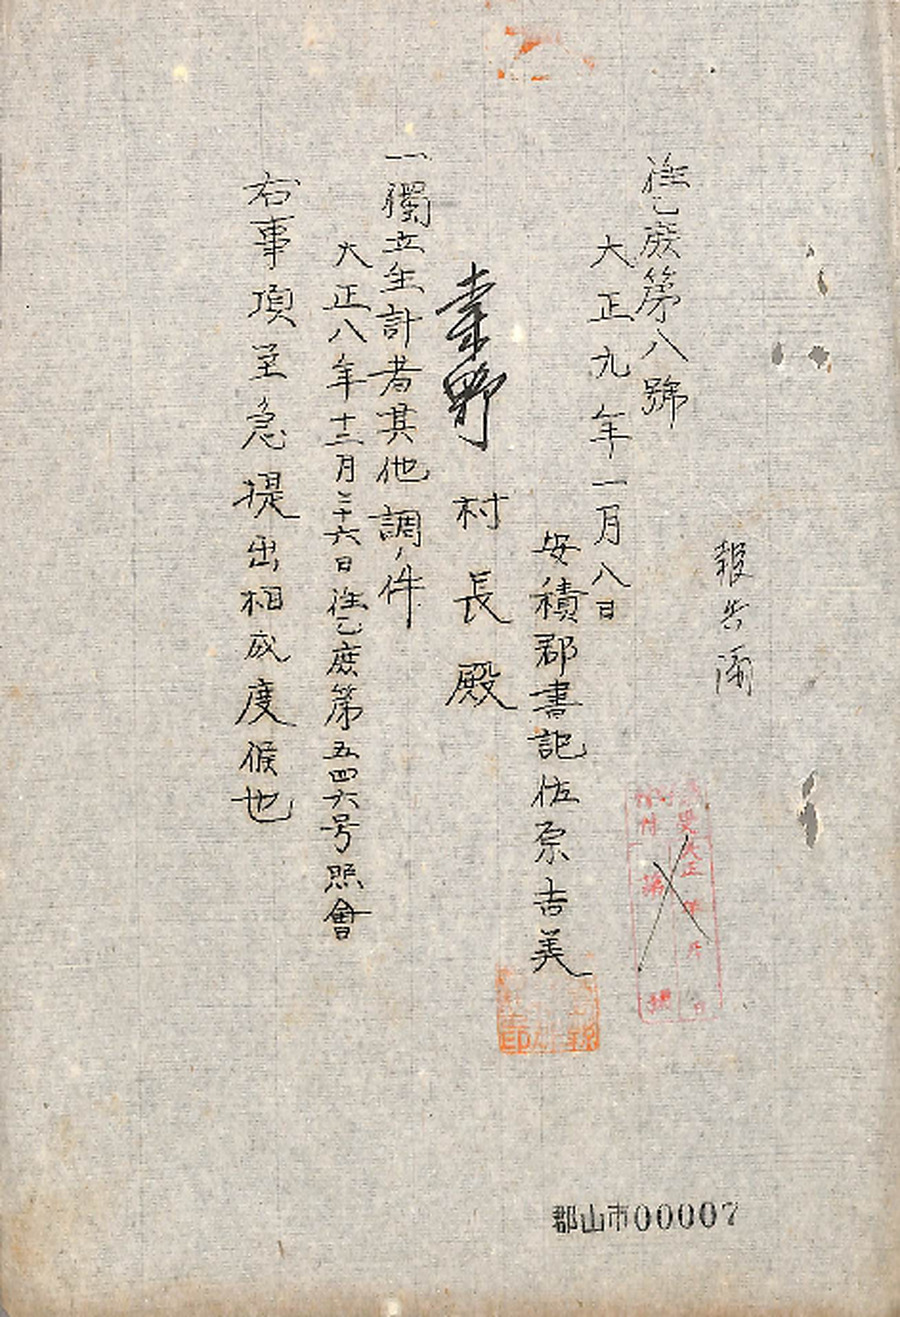 報告済
往乙庶第八號
大正九年一月八日
安積郡書記佐原吉美
幸野村長殿
一獨立生計者其他調ノ件
大正八年十二月二十六日往乙庶第五四六号照會
右事項至急提出相成度候也
大正 年 月 日
第 號
郡山市00007